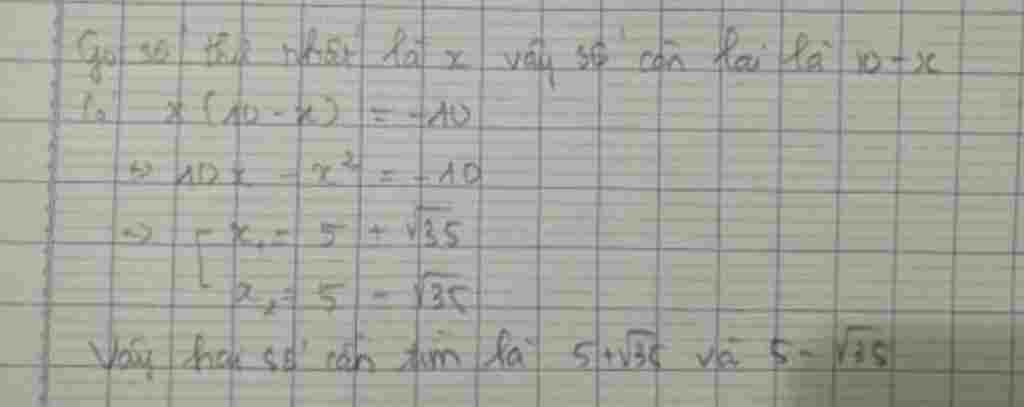 Gọi số thứ nhất là x vậy số còn lại là 10 - x
Có x (10 - x) = -10
⇔ 10x - x² = -10
⇔ [ x₁ = 5 + √35
x₂ = 5 - √35
Vậy hai số cần tìm là 5 + √35 và 5 - √35